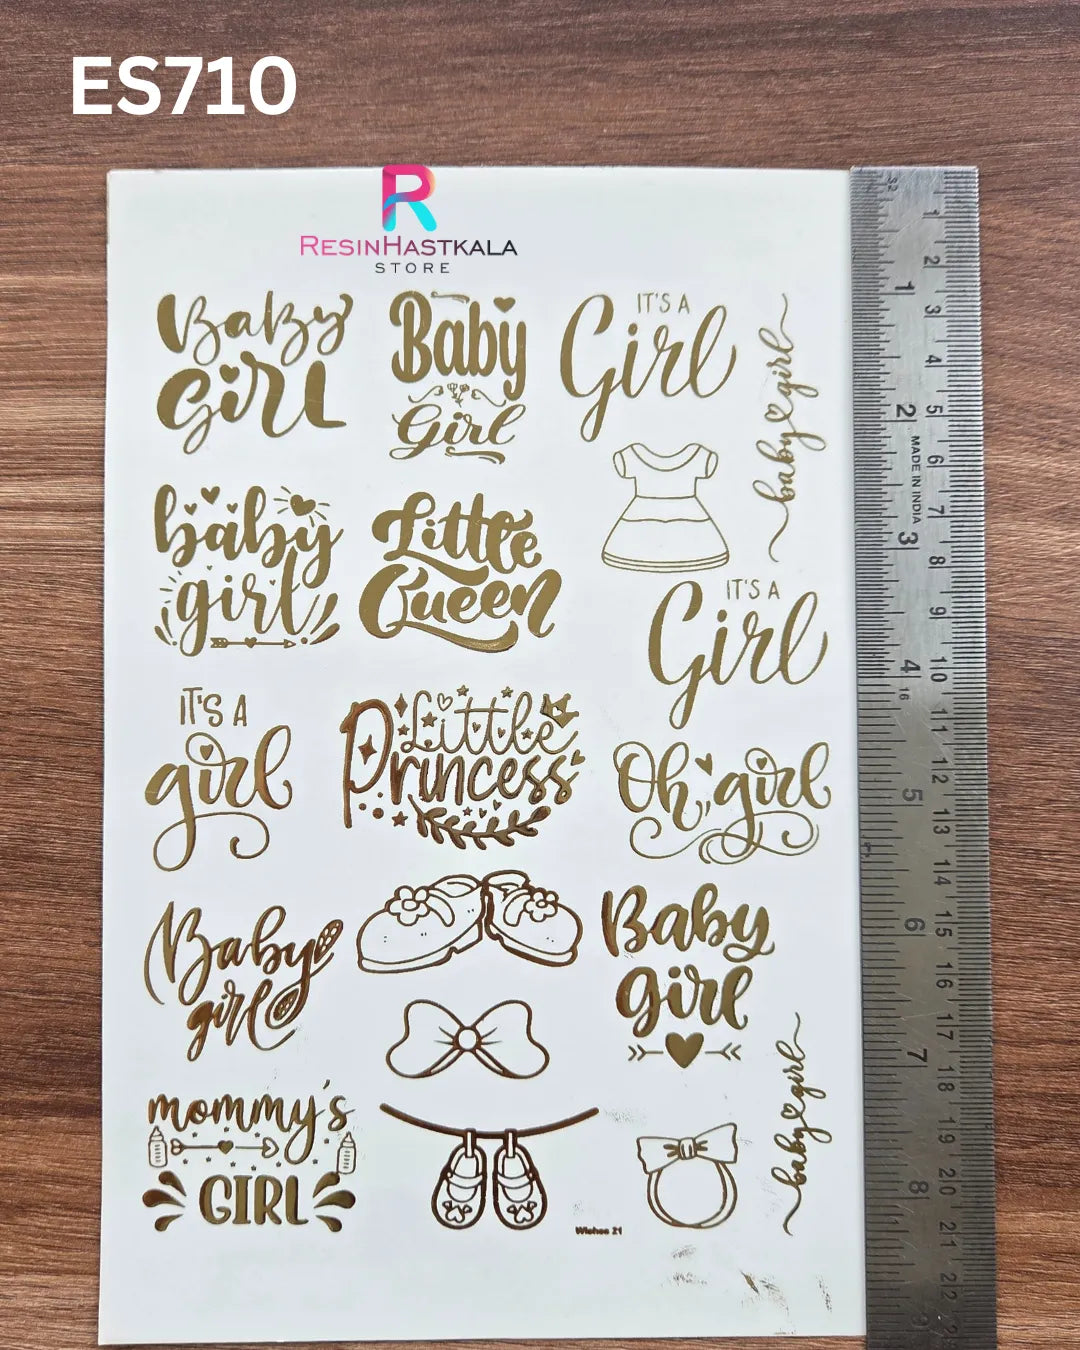 ES710
R
RESINHASTKALA
STORE
Baby
Girl
Baby
Girl
IT'S A
Girl
baby girl
baby
girl
Little
Queen
IT'S A
Girl
IT'S A
girl
Little
Princess
Oh, girl
Baby
girl
Baby
girl
mommy's
GIRL
baby girl
Wishes 21
1 2 3 4 5 6 7 8 9 10 11 12 13 14 15 16 17 18 19 20 21 22
32
1 2 3 4 5 6 7 8 9
MADE IN INDIA
16